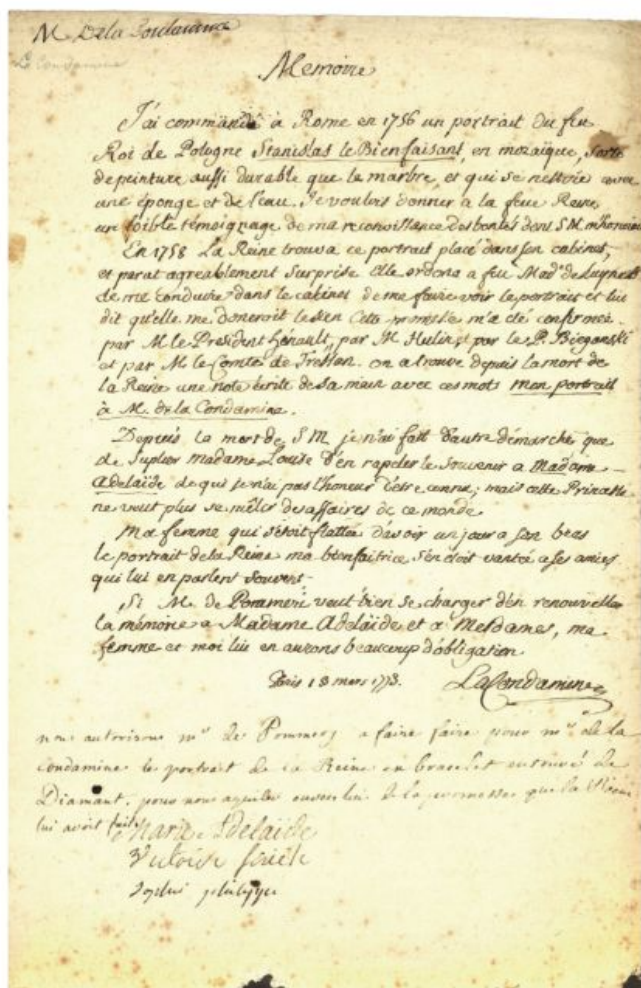 M De la Condamine
La Condamine
Memoire
J'ai commandé à Rome en 1756 un portrait du feu
Roi de Pologne Stanislas le Bienfaisant, en mozaïque, sorte
de peinture aussi durable que le marbre, et qui se nettoie avec
une éponge et de l'eau. Je voulois donner à la feue Reine
un foible témoignage de ma reconoissance des bontés dont S M m'honoroit
En 1758 La Reine trouva ce portrait placé dans son cabinet,
et parut agreablement surprise Elle ordona a feu Mad.e de
de me conduire dans le cabinet de me faire voir le portrait et lui
dit qu'elle me doneroit le sien Cette promesse m'a été confirmée
par M. le President Hénault, par M Hulin, et par le P. Bieganski
et par M. le Comte de Tressan. on a trouvé depuis la mort de
la Reine une note écrite de sa main avec ces mots mon portrait
à M. de la Condamine.
Depuis la mort de S M, je n'ai fait d'autre démarche que
de suplier Madame Louise d'en rapeler le souvenir a Madame
Adelaïde de qui je n'ai pas l'honeur d'être connu; mais cette Princesse
ne veut plus se mêler des affaires de ce monde.
Ma femme qui s'étoit flattée d'avoir un jour a son bras
le portrait de la Reine ma bienfaitrice s'en étoit vantée a ses amies,
qui lui en parlent souvent.
Si M. de Pommeri veut bien se charger d'en renouveller
la mémoire a Madame Adelaïde et a Mesdames, ma
femme et moi lui en aurons beaucoup d'obligation
Paris 18 mars 1773. LaCondamine
nous autorisons mr de Pommery a faire faire pour me de la
Condamine le portrait de la Reine en bracelet entouré de
Diamant, pour nous envers lui de la promesse que la Reine
lui avoit fait. Marie Adelaïde
Victoire Louise
Sophie philippe